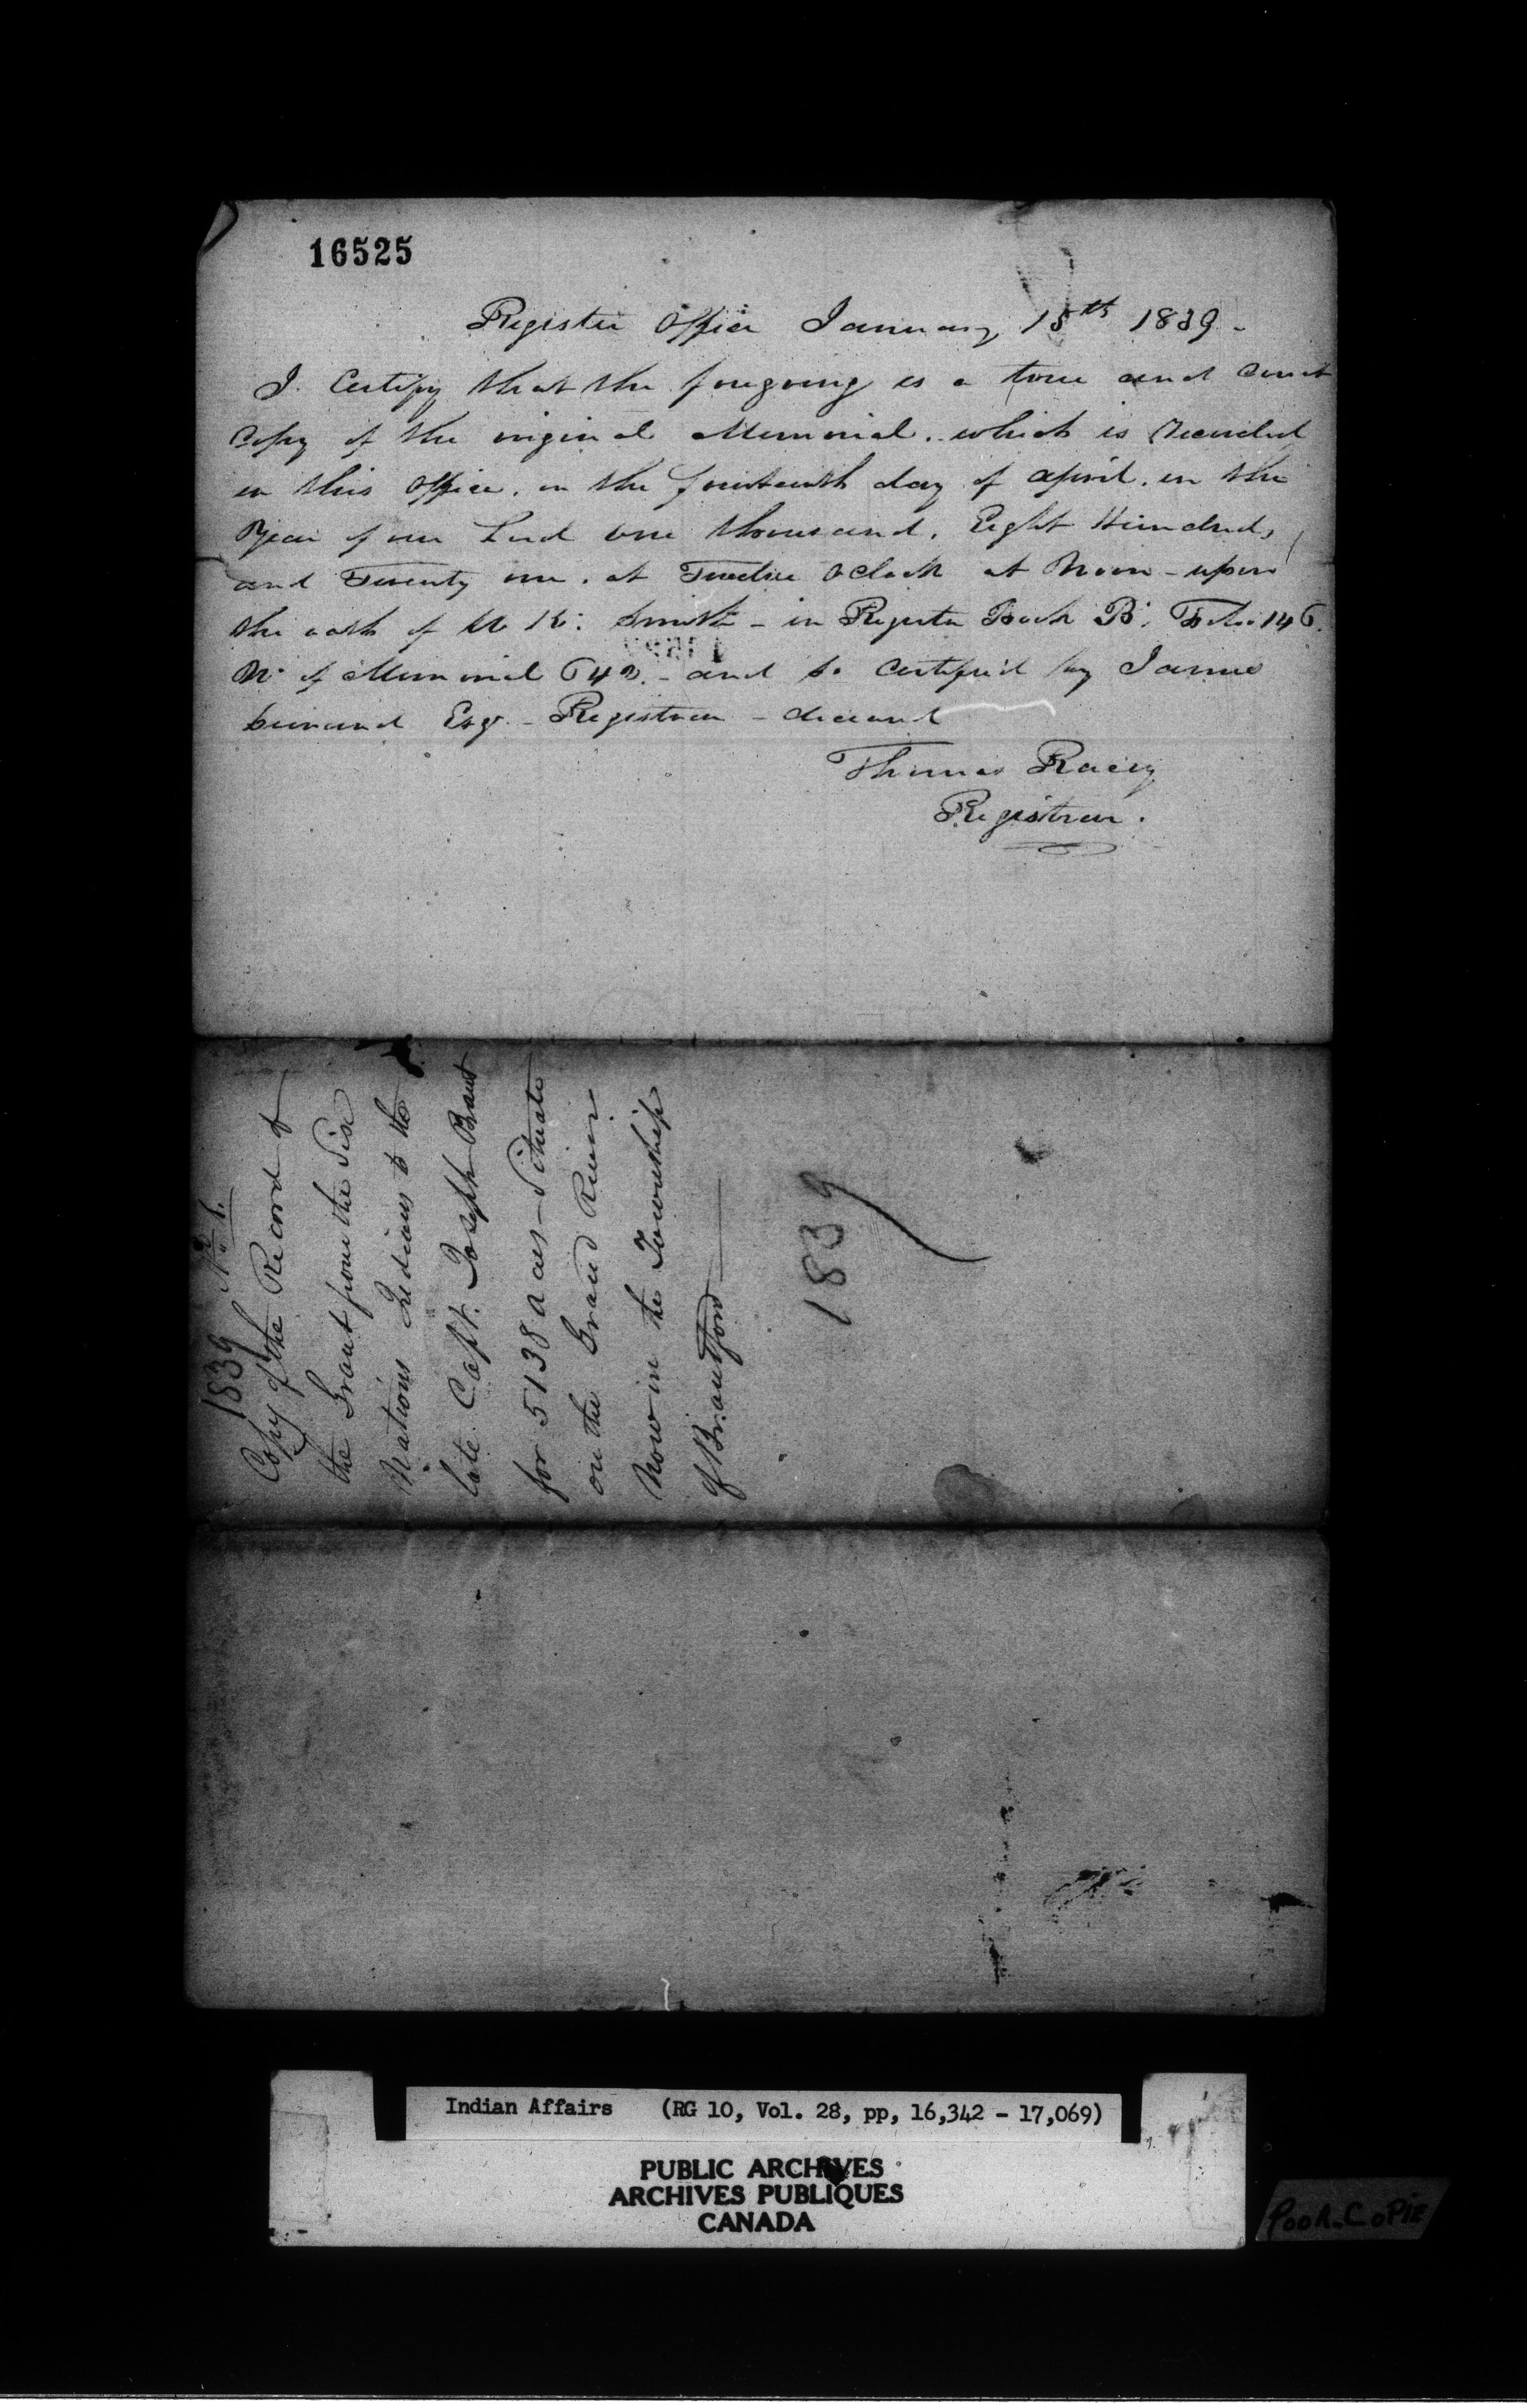 16525
Register Office January 15th 1839 -
I Certify that the foregoing is a true and correct
Copy of the original Memorial. which is Recorded
in this Office, on the fourteenth day of april. in the
Year of our Lord one thousand, Eight Hundred,
and Twenty one. at Twelve oClock at Noon - upon
the oath of Smith - in Register Book B. Folio 146.
No of Memorial 642. - and so Certified by James
Esqr - Registrar - deceased
Thomas Racey
Registrar.
1839 No 1.
Copy of the Record of
the Grant from the Six
Nations Indians to the
late Capt. Joseph Brant
for 5138 acres - Situate
on the Grand River
Now in the Township
of Brantford
1839
Indian Affairs (RG 10, Vol. 28, pp, 16,342 - 17,069)
PUBLIC ARCHIVES
ARCHIVES PUBLIQUES
CANADA
POOR-COPIE